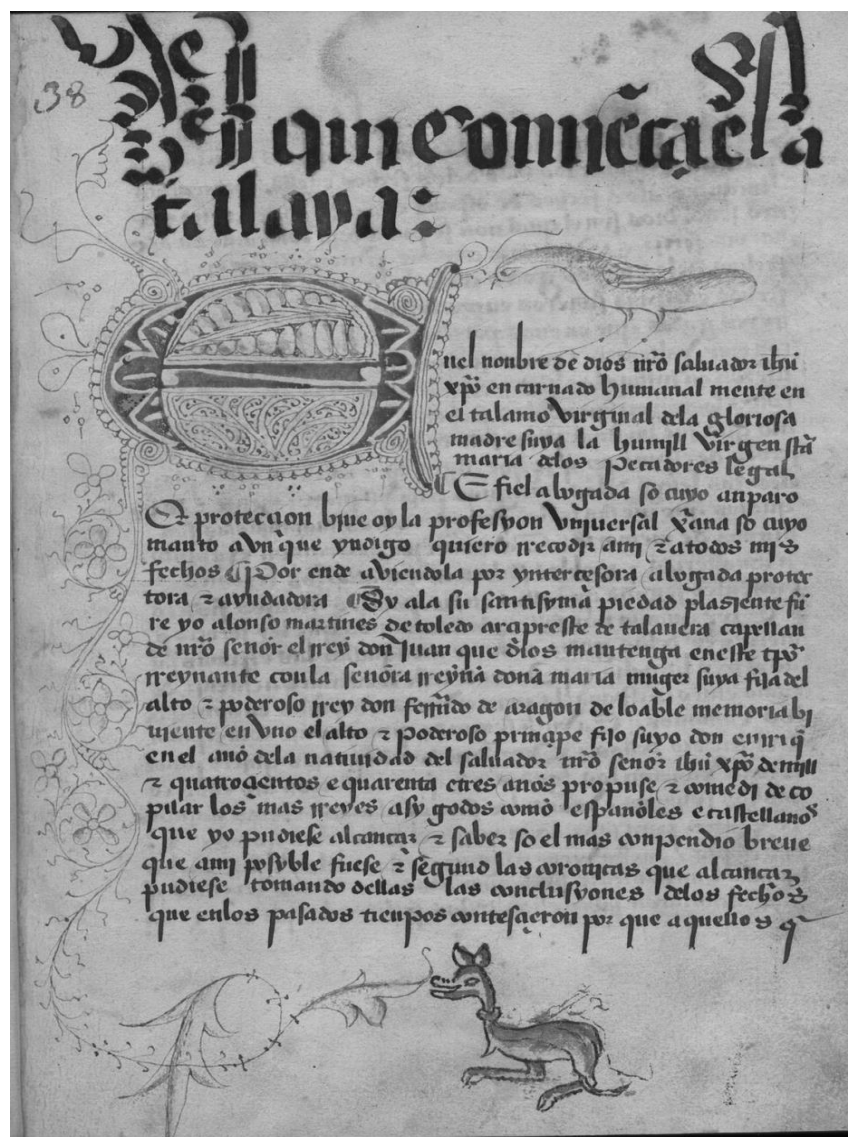 38
Aqui comiença el a
talaya:
En el nonbre de dios nr̃o saluador ihũ
xp̃o encarnado humanal mente en
el talamo virginal dela gloriosa
madre suya la humill virgen sr̃a
maria delos pecadores legal
¶ E fiel abogada so cuyo anparo
Et proteccion biue oy la profesyon vniuersal xp̃ana so cuyo
manto avn que yndigo quiero rrecodir ami z atodos mis
fechos ¶ Por ende aviendola por yntercesora abogada protec
tora z ayudadora ¶ Sy ala su santisyma piedad plasiente fue
re yo alonso martines de toledo arcipreste de talauera capellan
de nr̃o señor el rrey don Juan que dios mantenga eneste tp̃o
rreynante conla señora rreyna doña maria muger suya fija del
alto z poderoso rrey don ferrñdo de aragon de loable memoria bi
uiente en vno el alto z poderoso prinçipe fijo suyo don enrriq̃
en el año dela natiuidad del saluador nr̃o señor ihũ xp̃o de mill
z quatroçentos e quarenta e tres años propuse z comedi de co
pilar los mas rreyes asy godos como españoles e castellanos
que yo pudiese alcançar z saber so el mas conpendio breue
que ami posyble fuese z segund las coronicas que alcançar
pudiese tomando dellas las conclusyones delos fechos
que enlos pasados tienpos conteçieron por que aquellos q̃